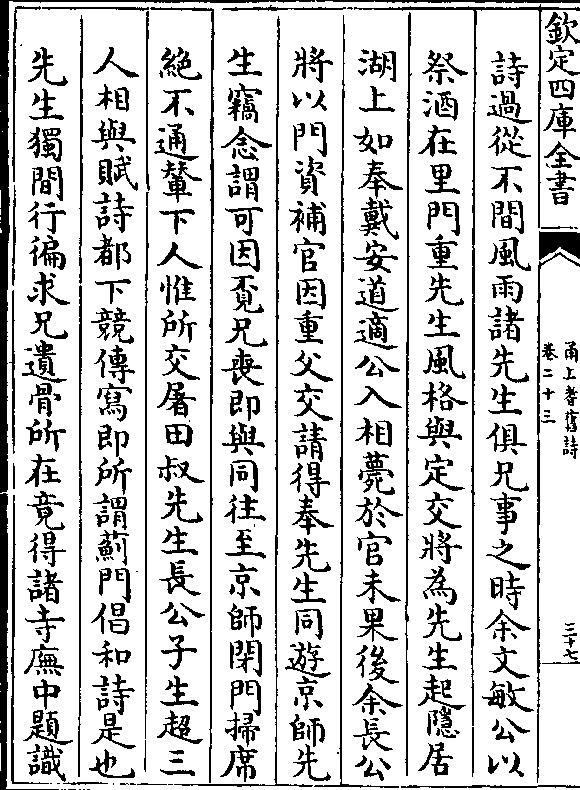 欽定四庫全書
甬上耆舊詩
卷二十三
三十七
詩過從不間風雨諸先生俱兄事之時余文敏公以
祭酒在里門重先生風格與定交將為先生起隱居
湖上如奉戴安道適公入相薨於官未果後余長公
將以門資補官因重父交請得奉先生同遊京師先
生竊念謂可因覔兄喪即與同往至京師閉門掃席
絶不通輦下人惟所交屠田叔先生長公子生超三
人相與賦詩都下競傳寫即所謂薊門倡和詩是也
先生獨間行徧求兄遺骨所在竟得諸寺廡中題識